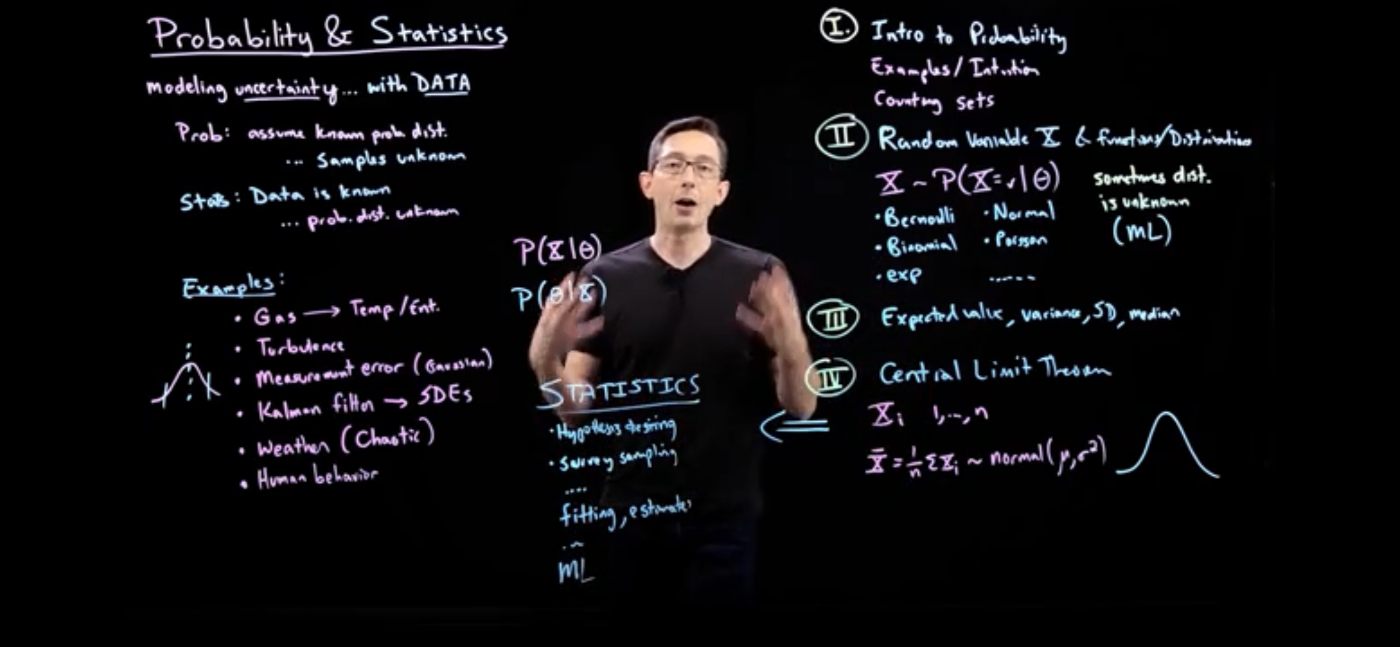 Probability & Statistics
modeling uncertainty... with DATA
Prob: assume known prob. dist.
... Samples unknown
Stats: Data is known
... prob. dist. unknown
Examples:
• Gas → Temp/Ent.
• Turbulence
• Measurement error (Gaussian)
• Kalman filter → SDEs
• Weather (Chaotic)
• Human behavior
P(X|θ)
P(θ|X)
STATISTICS
• Hypothesis testing
• Survey sampling
....
fitting, estimates
...
ML
I. Intro to Probability
Examples/Intuition
Counting sets
II Random Variable X & functions/Distributions
X ~ P(X=x|θ) sometimes dist.
is unknown
(ML)
• Bernoulli • Normal
• Binomial • Poisson
• exp ......
III Expected value, variance, SD, median
IV Central Limit Theorem
Xᵢ 1,...,n
X̄ = 1/n ΣXᵢ ~ normal(μ,σ²)
⇐